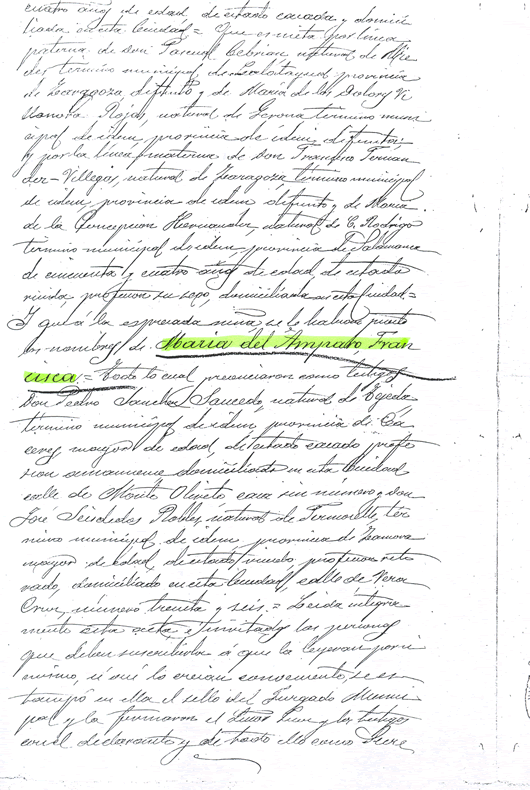 cuatro años de edad de estado casada y domici
liada en esta Ciudad = Que es nieta por línea
paterna de Don Pascual Cebrian natural de
de termino municipal de Calatayud provincia
de Zaragoza difunto y de María de los Dolores Vi
llanova Rojas, natural de Gerona termino muni
cipal de idem, provincia de idem, difunta;
y por la línea materna de Don Francisco Fernan
dez-Villegas, natural de Zaragoza termino municipal
de idem, provincia de idem difunto y de María
de la Concepcion Hernandez, natural de C. Rodrigo
termino municipal de idem, provincia de Salamanca
de cincuenta y cuatro años de edad de estado
viuda, profesion su sexo, domiciliada en esta Ciudad =
Y que á la espresada niña se le habian puesto
los nombres de Maria del Amparo Fran
cisca = Todo lo cual presenciaron como testigos
Don Pedro Sanchez Saucedo, natural de Tejeda
termino municipal de idem, provincia de Cá
ceres mayor de edad, de estado casado profe
sion amanuense domiciliado en esta Ciudad
calle de Monte Olivete, casa sin número y Don
José Seisdedos Robles, natural de Fermoselle, tér
mino municipal de idem provincia de Zamora
mayor de edad, de estado viudo, profesion reti
rado, domiciliado en esta Ciudad, calle de Vera
Cruz, número treinta y seis. = Leida integra
mente esta acta, é invitadas las personas
que deben suscribirla á que la leyeran por si
mismo, si asi lo creian conveniente, se es
tampó en ella el sello del Juzgado Munici
pal y la firmaron el Señor Juez y los testigos
con el declarante y de todo ello como Secre